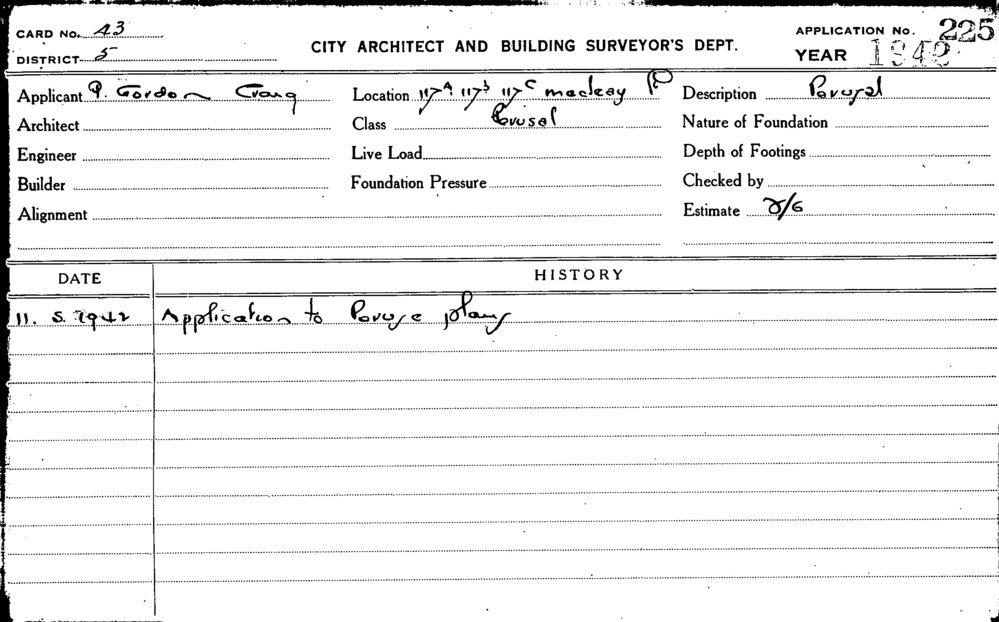 CARD No. 43
DISTRICT 5
CITY ARCHITECT AND BUILDING SURVEYOR'S DEPT.
APPLICATION No. 225
YEAR 1942
Applicant P. Gordon Craig
Location 117A 117B 117C Macleay
Description Perusal
Architect
Class Perusal
Nature of Foundation
Engineer
Live Load
Depth of Footings
Builder
Foundation Pressure
Checked by
Alignment
Estimate 2/6
DATE HISTORY
11. 5. 1942 Application to Peruse plans